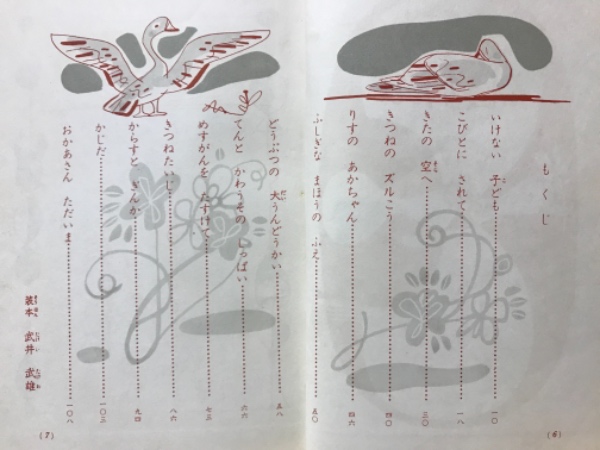 もくじ
いけない 子ども……一〇
こびとに されて……一八
きたの 空へ……三〇
きつねの ズルこう……四〇
りすの あかちゃん……四六
ふしぎな まほうの ふえ……五〇
(6)
どうぶつの 大うんどうかい……五八
くんと かわうその しっぱい……六六
めすがんを たすけて……七三
きつねたいじ……八六
からすと ぎんか……九四
かじだ……一〇三
おかあさん ただいま……一〇八
装本 武井 武雄
(7)